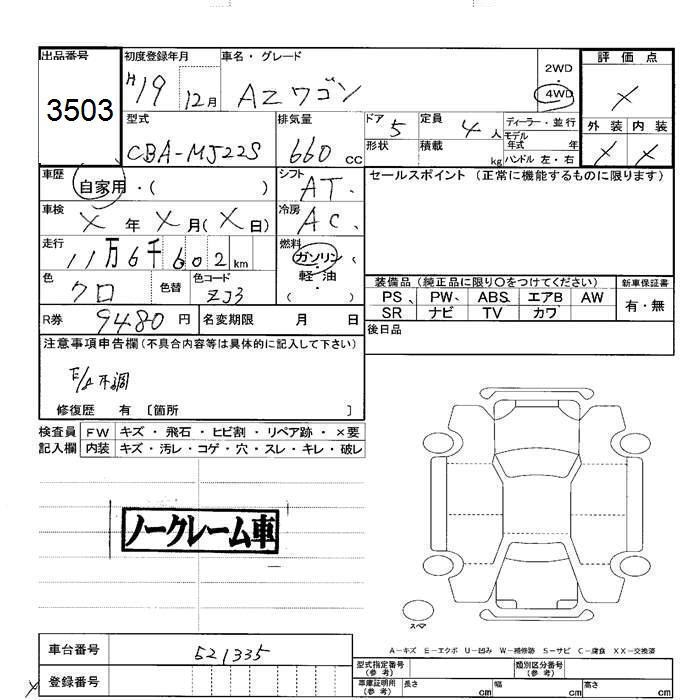 出品番号
3503
初度登録年月
H19 12月
車名・グレード
AZワゴン
2WD
・
4WD
評価点
X
外装 内装
X X
型式
CBA-MJ22S
排気量
660 cc
ドア 5
定員 4 人
ディーラー・並行
形状
積載 kg
モデル年式 年
ハンドル 左・右
車歴
自家用・( )
シフト
AT.
セールスポイント (正常に機能するものに限ります)
車検
X 年 X 月(X 日)
冷房
AC.
走行
11万6千602 km
燃料
ガソリン
・
軽・油
( )
色
クロ
色替
色コード
ZJ3
装備品 (純正品に限り〇をつけてください)
新車保証書
PS、 PW、 ABS、 エアB AW
SR ナビ TV カワ
有・無
R券 9480 円
名変期限 月 日
後日品
注意事項申告欄(不具合内容等は具体的に記入して下さい)
E/A不調
修復歴 有 〔箇所 〕
検査員 FW キズ・飛石・ヒビ割・リペア跡・×要
記入欄 内装 キズ・汚レ・コゲ・穴・スレ・キレ・破レ
ノークレーム車
スペア
A-キズ E-エクボ U-凹み W-補修跡 S-サビ C-腐食 XX-交換済
車台番号 521335
登録番号
型式指定番号(参考)
類別区分番号(参考)
車庫証明用(参考) 長さ cm 幅 cm 高さ cm